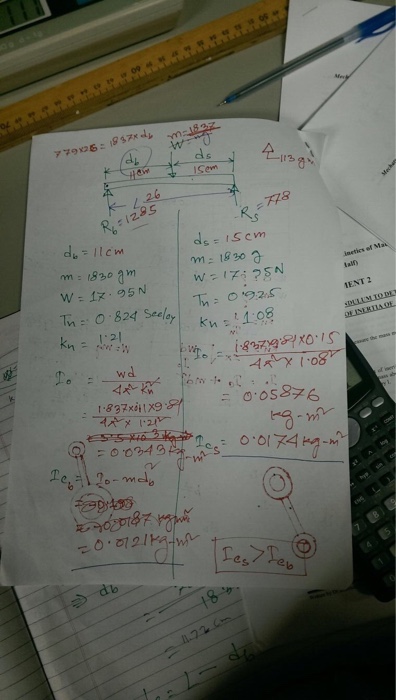 779×26=1837×db
m=1837
W=mg
db
ds
11cm
15cm
113g
L 26
Rb=1285
Rs=778
db=11cm
m=1830gm
W=17.95N
Tn=0.824 Sec/oy
Kn=1.21
Io = wd / 4π²Kn²
= 1.837×11×9.81 / 4π²×1.21²
= 0.0343 kg-m²
Icb = Io-mdb²
= 0.0121 kg-m²
ds=15cm
m=1830g
W=17.95N
Tn=0.925
Kn=1.08
Io = 1.837×9.81×0.15 / 4π²×1.08²
= 0.05876 kg-m²
Ics = 0.0174 kg-m²
Ics > Icb
Mech
inetics of Mac
Half)
MENT 2
NDULUM TO DE
OF INERTIA OF
⇒ db
= L - db